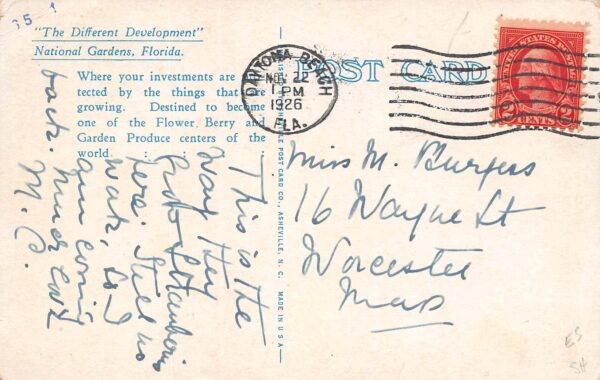 35
"The Different Development"
National Gardens, Florida.
Where your investments are
tected by the things that are
growing. Destined to become
one of the Flower, Berry and
Garden Produce centers of the
world . : : : : :
DAYTONA BEACH
NOV 22
1 PM
1926
FLA.
POST CARD
UNITED STATES POSTAGE
2 CENTS 2
POST CARD CO., ASHEVILLE, N. C. MADE IN U S A
This is the
way they
grow Strawberries
here. Still no
work, so I
am coming
back.
M. C.
Miss M. Burgess
16 Wayne St
Worcester
Mass
ES
SH